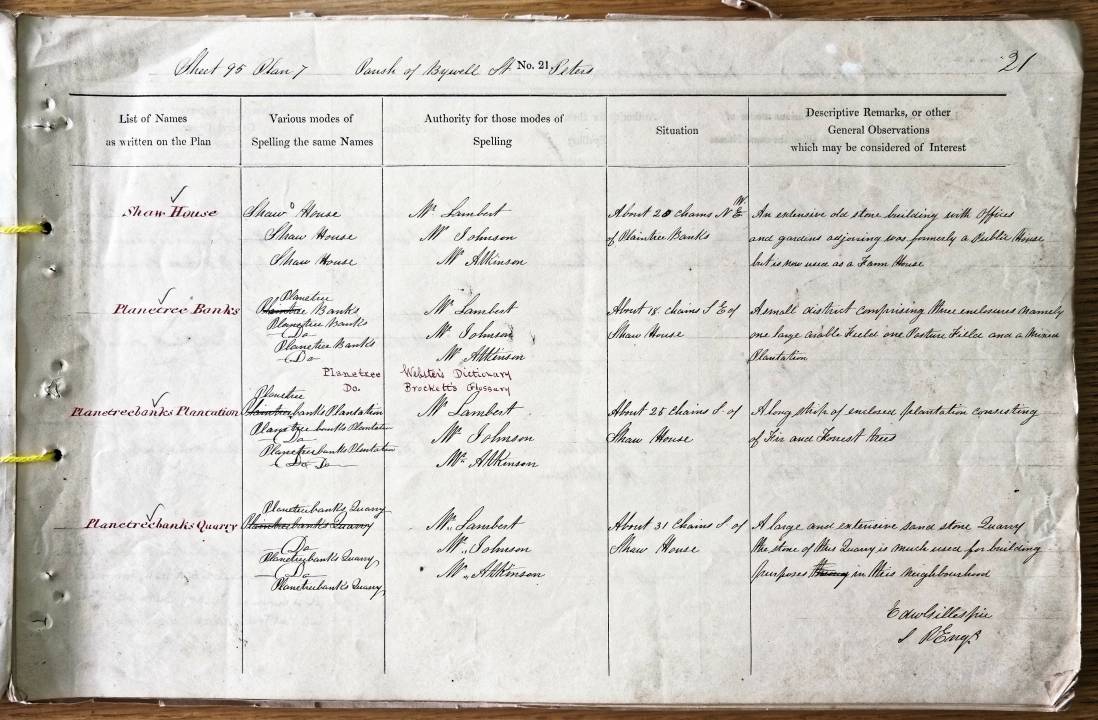 Sheet 95 Plan 7 Parish of Bywell St. No. 21. Peters
21
List of Names
as written on the Plan
Various modes of
Spelling the same Names
Authority for those modes of
Spelling
Situation
Descriptive Remarks, or other
General Observations
which may be considered of Interest
Shaw House
Shaw House
Shaw House
Shaw House
Mr Lambert
Mr Johnson
Mr Atkinson
About 20 chains N W. E
of Plaintree Banks
An extensive old stone building with Offices
and gardens adjoining was formerly a Public House
but is now used as a Farm House
Planetree Banks
Planetree
Plaintree Banks
Planetree Banks
Do
Planetree Banks
Do
Planetree
Do.
Mr Lambert
Mr Johnson
Mr Atkinson
Webster's Dictionary
Brockett's Glossary
About 18 chains S E of
Shaw House
A small district comprising three enclosures namely
one large arable Field one Pasture Field and a Mixed
Plantation
Planetreebanks Plantation
Planetree
Plaintreebanks Plantation
Planetreebanks Plantation
Do
Planetreebanks Plantation
Do Do
Mr Lambert
Mr Johnson
Mr Atkinson
About 25 Chains S. of
Shaw House
A long strip of enclosed plantation consisting
of Fir and Forrest trees
Planetreebanks Quarry
Planetreebanks Quarry
Planetreebanks Quarry
Do
Planetreebanks Quarry
Do
Planetreebanks Quarry
Mr Lambert
Mr Johnson
Mr Atkinson
About 31 Chains S of
Shaw House
A large and extensive sand stone Quarry
the stone of this Quarry is much used for building
purposes in this neighbourhood
Edw Gillespie
S R Engrs